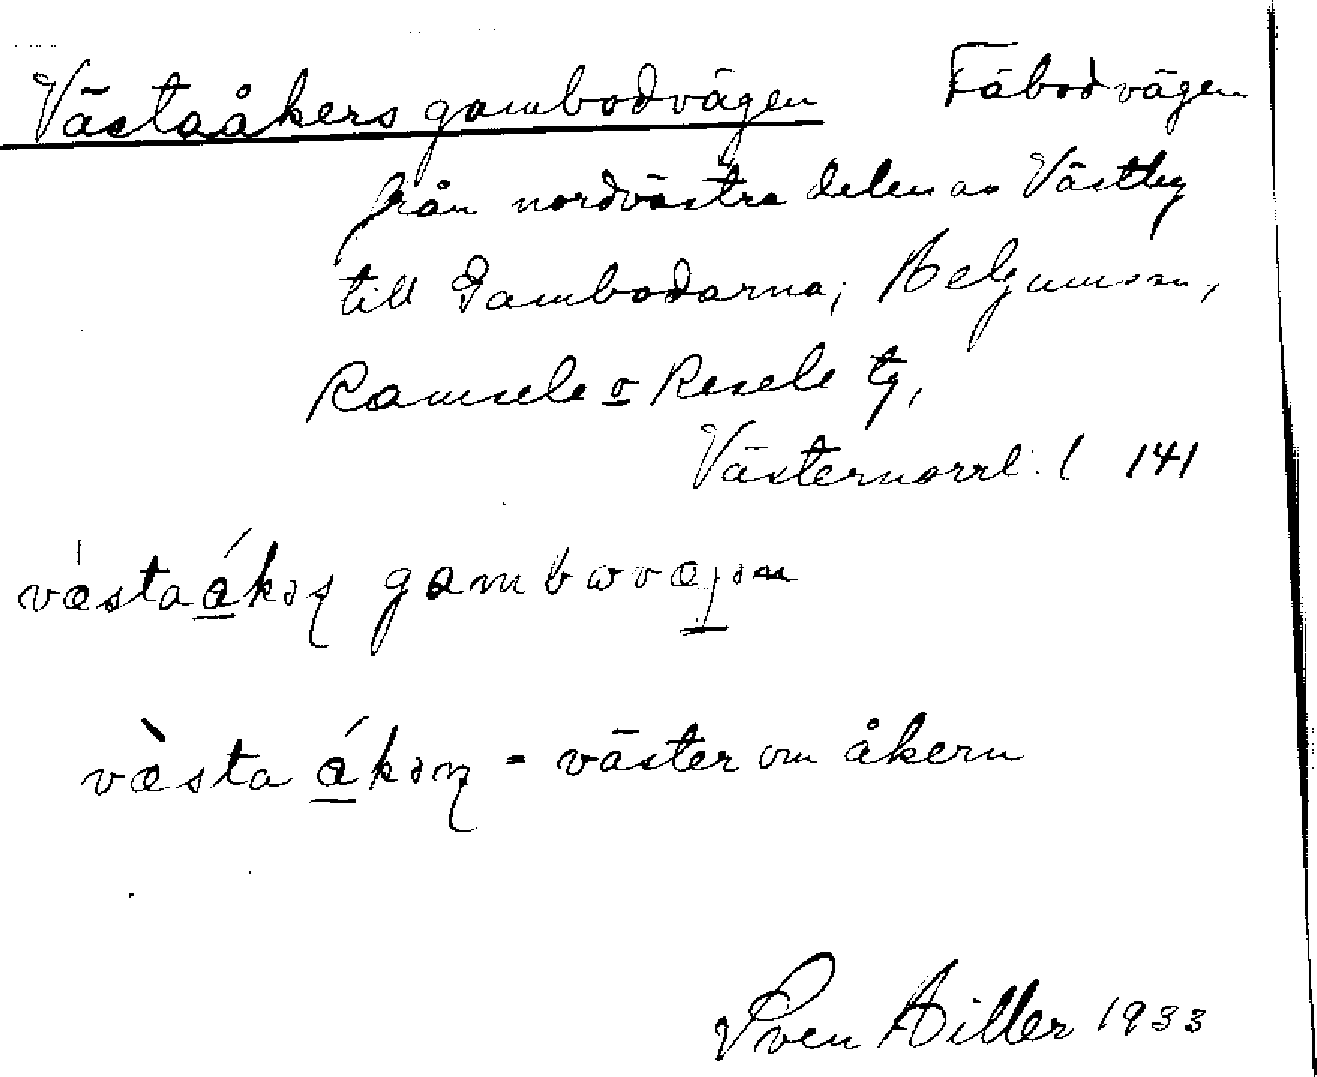 Västaåkers gambodvägen Fäbodvägen
från nordvästra delen av Västby
till Gambodarna; Helgumssn,
Ramsele o Resele tg,
Västernorrl. l 141
västaåkəṣ gambωvæjən
væsta åkəṇ - väster om åkern
Sven Hiller 1933